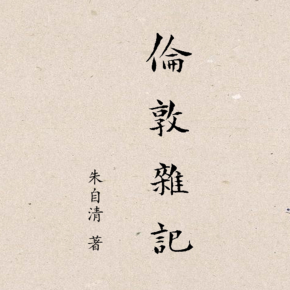 倫敦雜記
朱自清 著